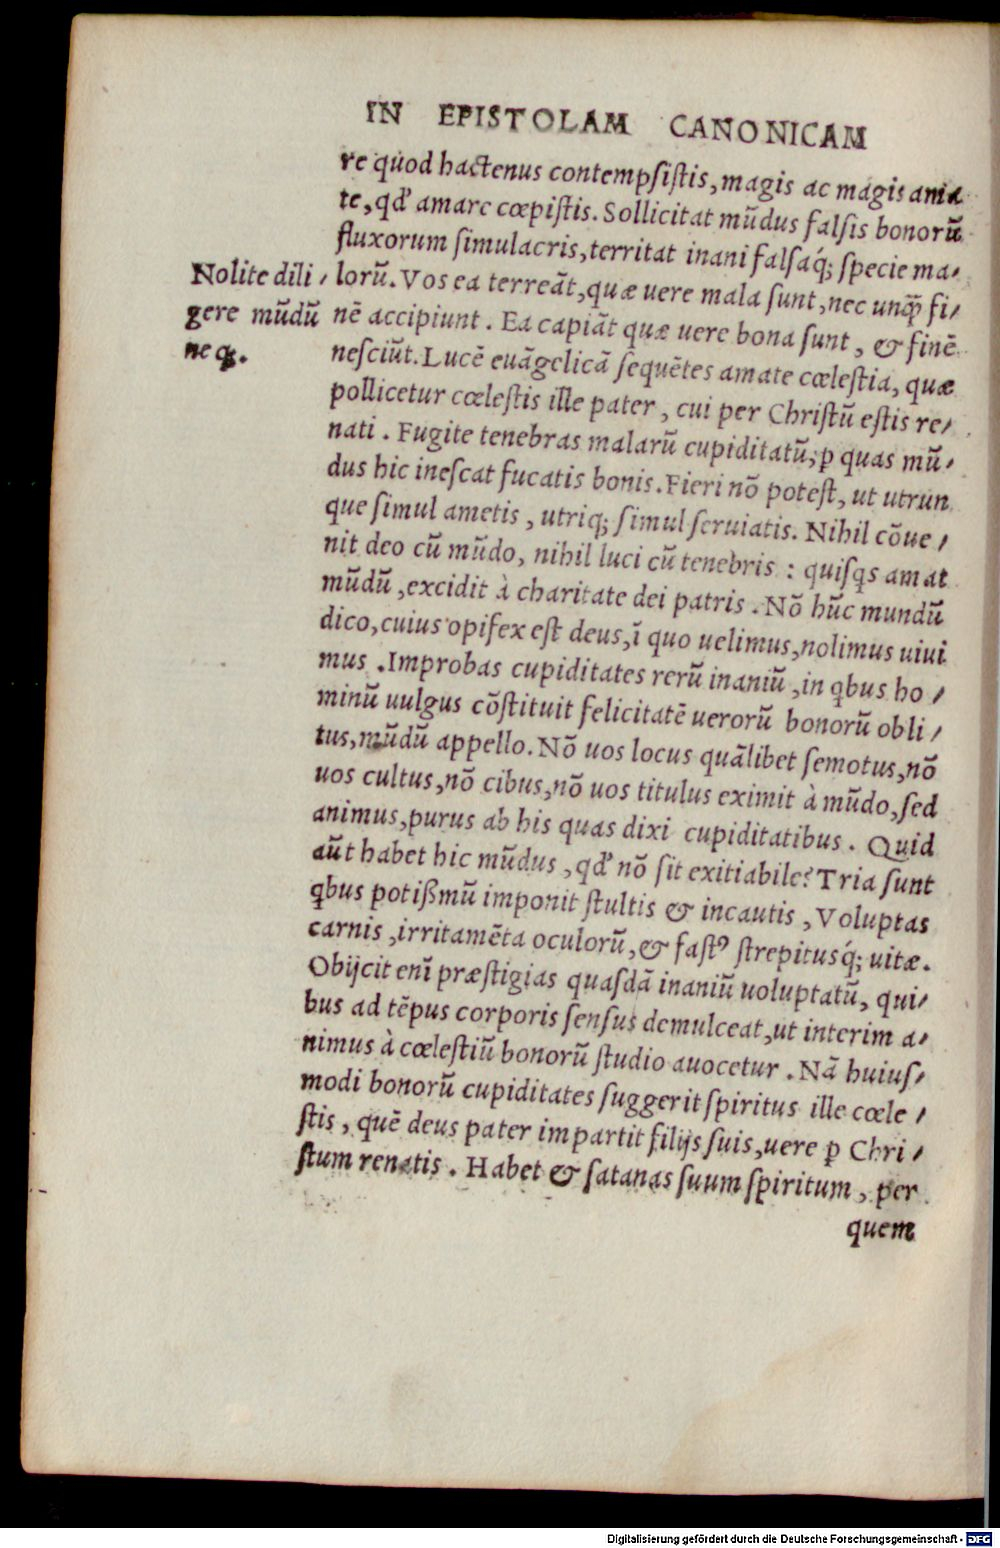 IN EPISTOLAM CANONICAM
re quod hactenus contempsistis, magis ac magis ama
te, qd' amare cœpistis. Sollicitat mūdus falsis bonorū
fluxorum simulacris, territat inani falsaq́; specie ma-
lorū. Vos ea terreāt, quæ uere mala sunt, nec unq̄ fi-
nē accipiunt. Ea capiāt quæ uere bona sunt, & finē
nesciūt. Lucē euāgelicā sequētes amate cœlestia, quæ
pollicetur cœlestis ille pater, cui per Christū estis re-
nati. Fugite tenebras malarū cupiditatū, ꝑ quas mū-
dus hic inescat fucatis bonis. Fieri nō potest, ut utrun
que simul ametis, utriq; simul seruiatis. Nihil cōue-
nit deo cū mūdo, nihil luci cū tenebris: quisq̇s amat
mūdū, excidit à charitate dei patris. Nō hūc mundū
dico, cuius opifex est deus, ī quo uelimus, nolimus uiui
mus. Improbas cupiditates rerū inaniū, in q̇bus ho-
minū uulgus cōstituit felicitatē uerorū bonorū obli-
tus, mūdū appello. Nō uos locus quālibet semotus, nō
uos cultus, nō cibus, nō uos titulus eximit à mūdo, sed
animus, purus ab his quas dixi cupiditatibus. Quid
aūt habet hic mūdus, qd' nō sit exitiabile? Tria sunt
q̇bus potißmū imponit stultis & incautis, Voluptas
carnis, irritamēta oculorū, & fastꝰ strepitusq́; uitæ.
Obijcit enī præstigias quasdā inaniū uoluptatū, qui-
bus ad tēpus corporis sensus demulceat, ut interim a-
nimus à cœlestiū bonorū studio auocetur. Nā huius-
modi bonorū cupiditates suggerit spiritus ille cœle-
stis, quē deus pater impartit filijs suis, uere ꝑ Chri-
stum renatis. Habet & satanas suum spiritum, per
quem
Nolite dili-
gere mūdū
neq;.
Digitalisierung gefördert durch die Deutsche Forschungsgemeinschaft - DFG